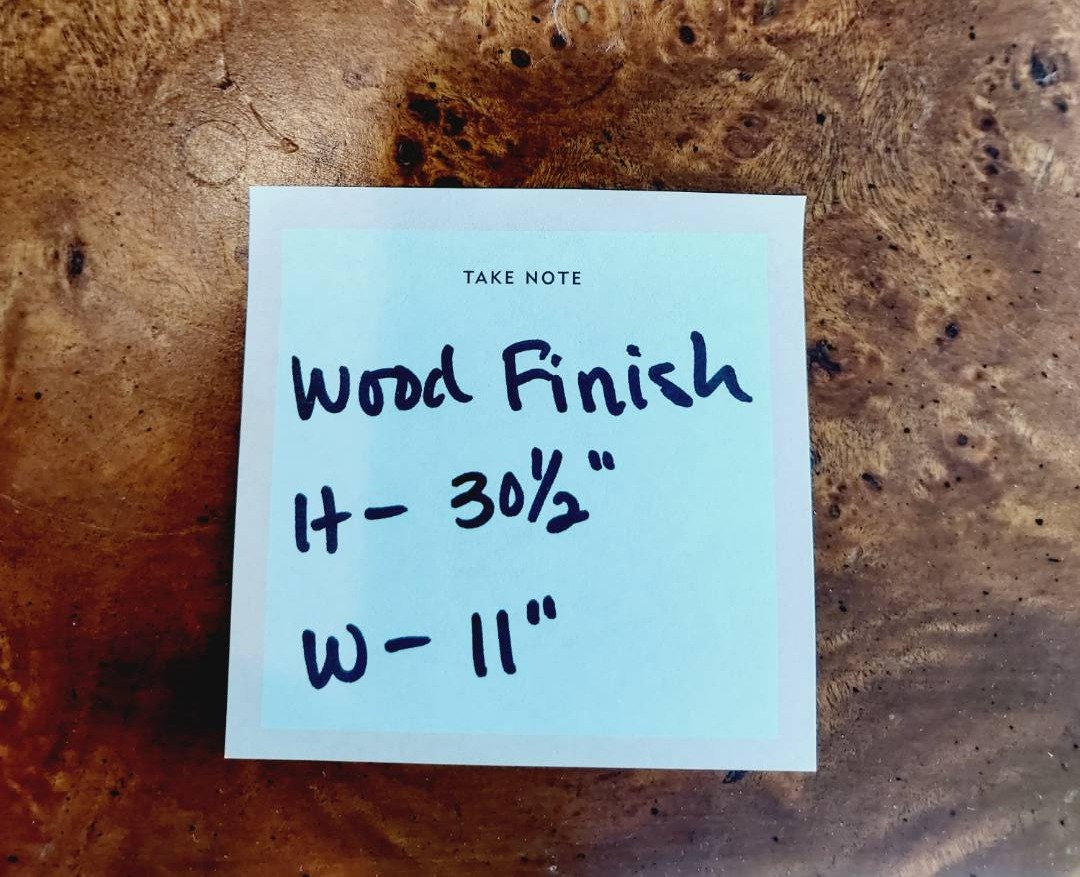 TAKE NOTE
Wood Finish
H- 30½"
W- 11"